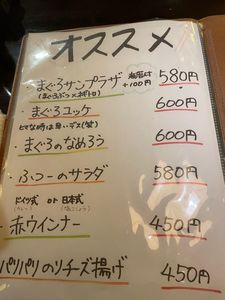 オススメ
まぐろサンプラザ 580円
(まぐろぶつ×ネギトロ) +100円
まぐろユッケ 600円
ヒマな時は早いデス(笑)
まぐろのなめろう 600円
ふつーのサラダ 580円
ドイツ式 or 日本式
赤ウインナー 450円
パリパリのりチーズ揚げ 450円